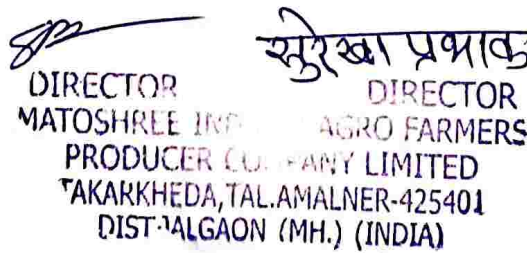 सुरेखा प्रभाक
DIRECTOR DIRECTOR
MATOSHREE AGRO FARMERS
PRODUCER COMPANY LIMITED
TAKARKHEDA, TAL.AMALNER-425401
DIST-JALGAON (MH.) (INDIA)